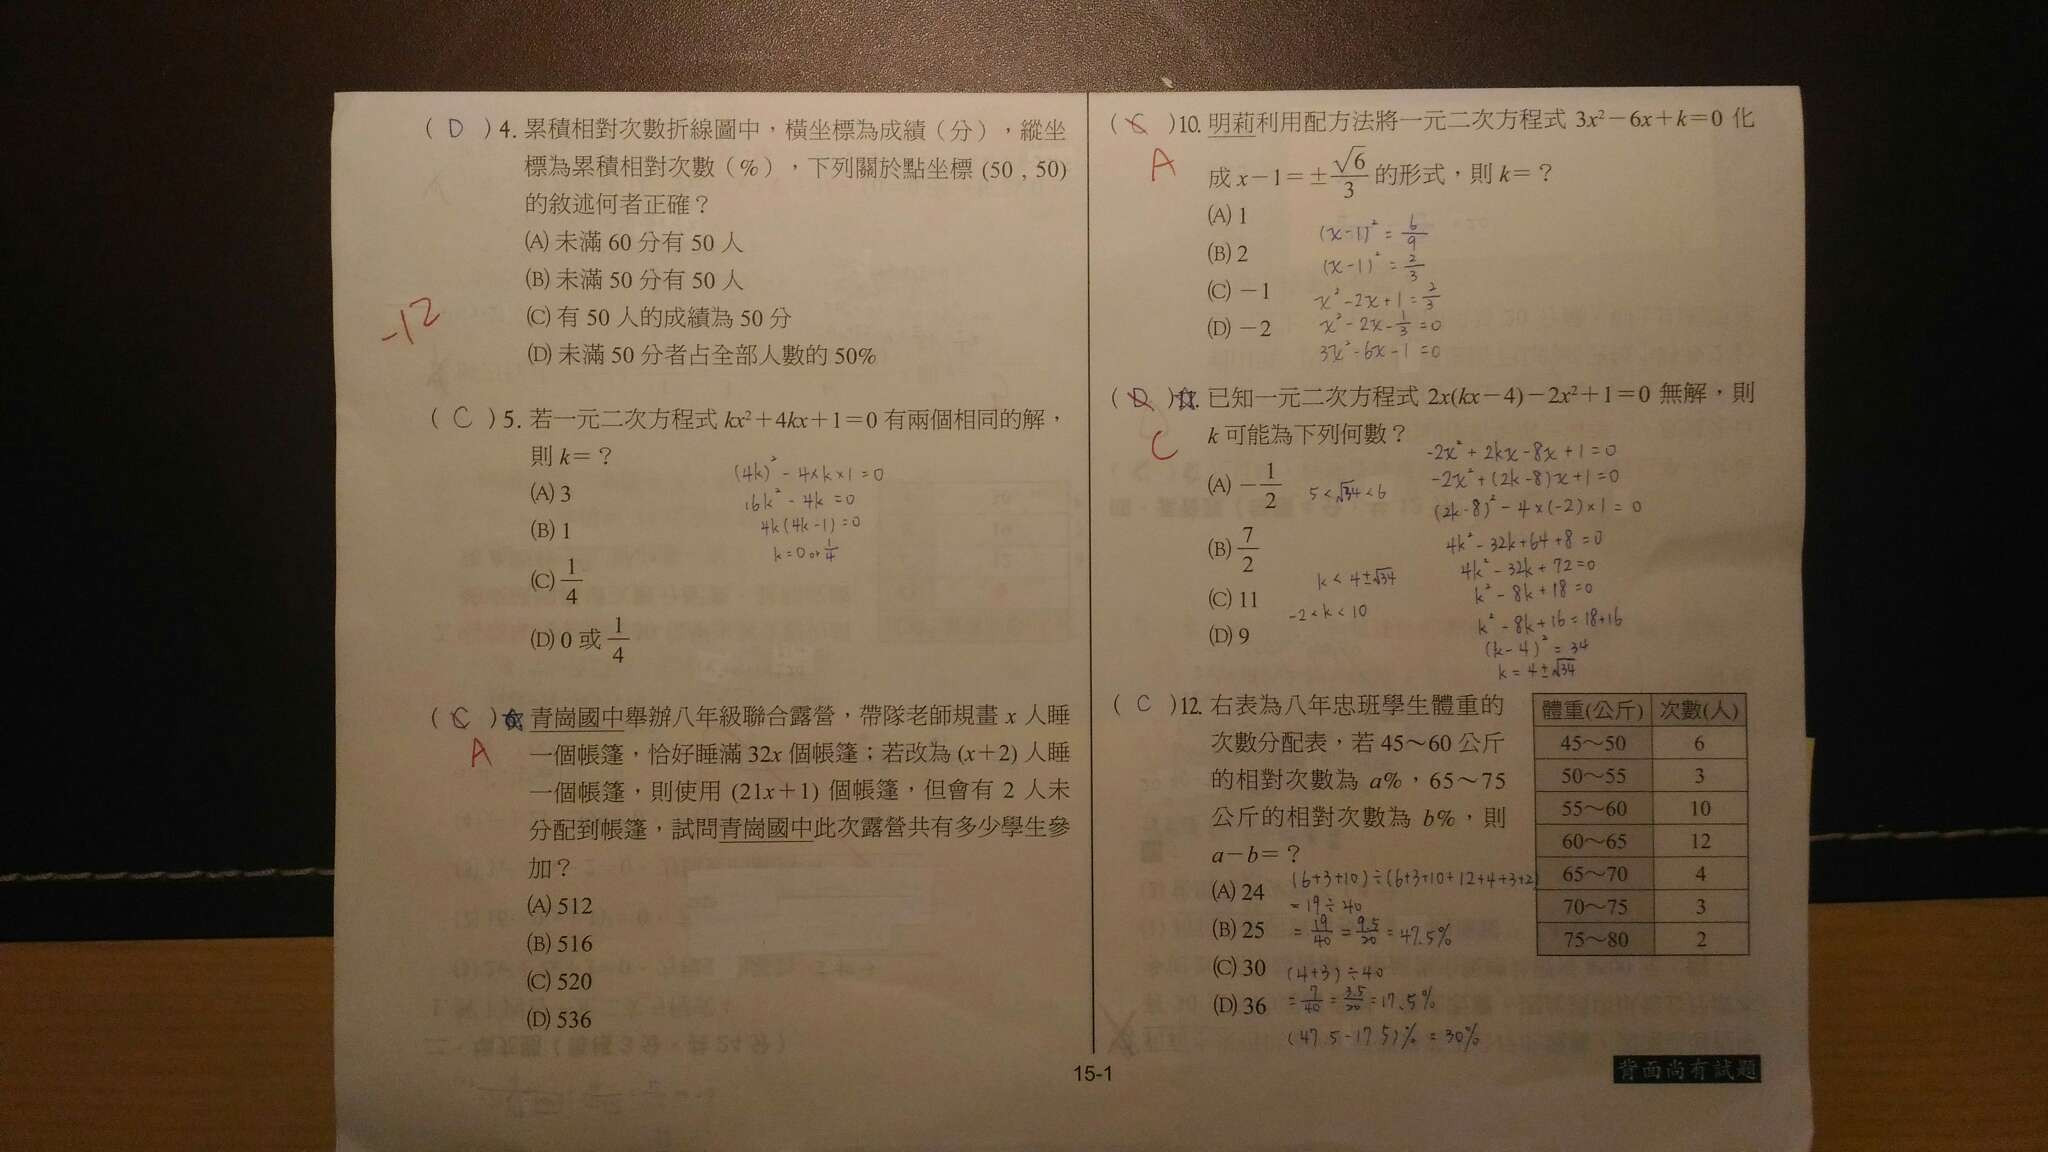 ( D ) 4. 累積相對次數折線圖中，橫坐標為成績（分），縱坐
標為累積相對次數（%），下列關於點坐標 (50 , 50)
的敘述何者正確？
(A) 未滿 60 分有 50 人
(B) 未滿 50 分有 50 人
(C) 有 50 人的成績為 50 分
(D) 未滿 50 分者占全部人數的 50%
-12
( C ) 5. 若一元二次方程式 kx²+4kx+1=0 有兩個相同的解，
則 k=？
(A) 3
(B) 1
(C) 1/4
(D) 0 或 1/4
(4k)² - 4×k×1 = 0
16k² - 4k = 0
4k(4k-1) = 0
k = 0 or 1/4
( C ) 青崗國中舉辦八年級聯合露營，帶隊老師規畫 x 人睡
A
一個帳篷，恰好睡滿 32x 個帳篷；若改為 (x+2) 人睡
一個帳篷，則使用 (21x+1) 個帳篷，但會有 2 人未
分配到帳篷，試問青崗國中此次露營共有多少學生參
加？
(A) 512
(B) 516
(C) 520
(D) 536
( C ) 10. 明莉利用配方法將一元二次方程式 3x²-6x+k=0 化
A
成 x-1=±√6/3 的形式，則 k=？
(A) 1
(B) 2
(C) -1
(D) -2
(x-1)² = 6/9
(x-1)² = 2/3
x² - 2x + 1 = 2/3
x² - 2x - 1/3 = 0
3x² - 6x - 1 = 0
( D ) 已知一元二次方程式 2x(kx-4)-2x²+1=0 無解，則
C
k 可能為下列何數？
(A) -1/2
(B) 7/2
(C) 11
(D) 9
5 < √34 < 6
k < 4±√34
-2 < k < 10
-2x² + 2kx - 8x + 1 = 0
-2x² + (2k-8)x + 1 = 0
(2k-8)² - 4×(-2)×1 = 0
4k² - 32k + 64 + 8 = 0
4k² - 32k + 72 = 0
k² - 8k + 18 = 0
k² - 8k + 16 = 18+16
(k-4)² = 34
k = 4±√34
( C ) 12. 右表為八年忠班學生體重的
次數分配表，若 45～60 公斤
的相對次數為 a%，65～75
公斤的相對次數為 b%，則
a-b=？
(A) 24
(B) 25
(C) 30
(D) 36
(6+3+10)÷(6+3+10+12+4+3+2)
= 19÷40
= 19/40 = 9.5/20 = 47.5%
(4+3)÷40
= 7/40 = 3.5/20 = 17.5%
(47.5-17.5)% = 30%
體重(公斤) 次數(人)
45～50 6
50～55 3
55～60 10
60～65 12
65～70 4
70～75 3
75～80 2
15-1
背面尚有試題